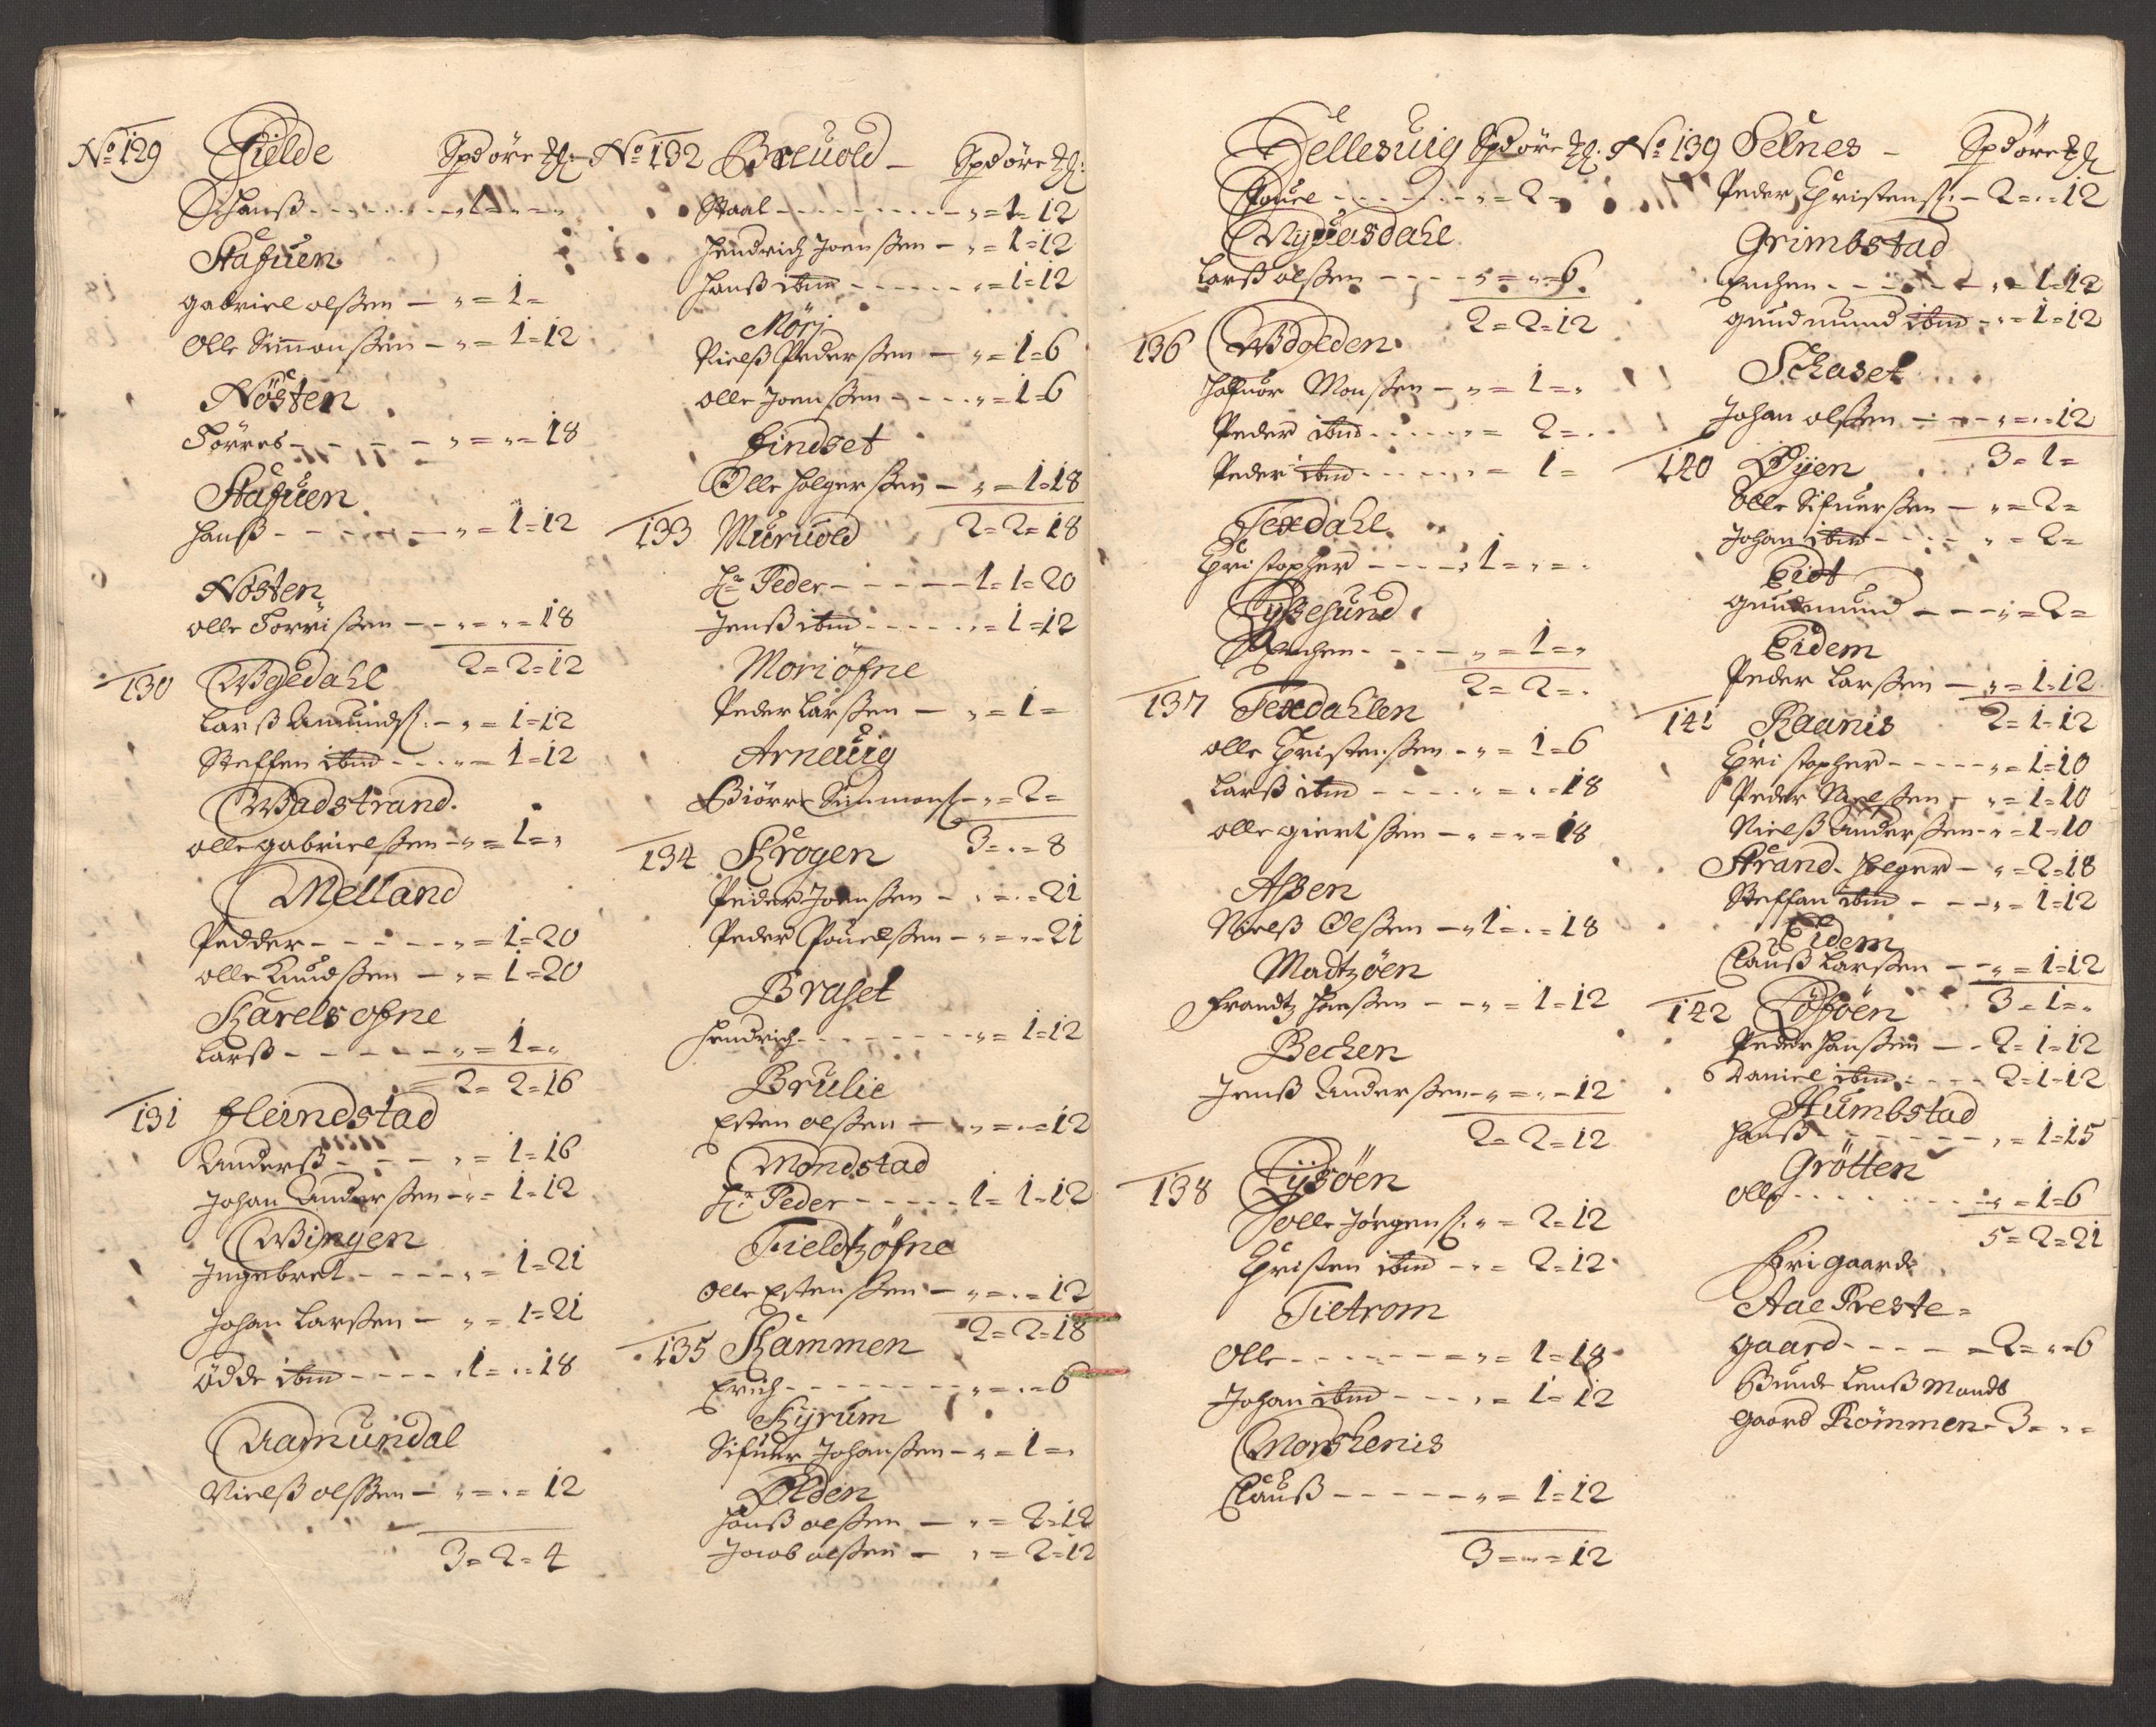 No 129 Fielde Spd öre
Schanß - - - „ = 1 = „ = „
Stafuen
gabriel olßen — „ = 1 =
Olle Simonßen — „ = 1 = 12
Nösten
Törres - - - - „ = „ = 18
Stafuen
Hanß - - - - „ = 1 = 12
Nösten
olle Torrißen — „ = „ = 18
2 = 2 = 12
130 Wgedahl
Larß Amunds: — „ = 1 = 12
Steffen ibm - - - „ = 1 = 12
Wadstrand.
olle gabrielßen — „ = 1 = „
Melland
Pedder - - - - „ = 1 = 20
olle Knudßen — „ = 1 = 20
Karels ofne
Larß - - - - - „ = 1 = „
2 = 2 = 16
131 Heindstad
Anderß - - - „ = 1 = 16
Johan Anderßen - „ = 1 = 12
Wingen
Ingebret - - - - „ = 1 = 21
Johan Larßen — „ = 1 = 21
Ödde ibm - - - - 1 = „ = 18
Aamundal
Nielß olßen — „ = „ = 12
3 = 2 = 4
No 132 Breuold — Spd öre
Staal - - - - - „ = 1 = 12
Hendrich Joenßen — „ = 1 = 12
Hanß ibm - - - - „ = 1 = 12
Mörj
Nielß Pederßen — „ = 1 = 6
olle Joenßen - - - „ = 1 = 6
Findset
Olle Holgerßen — „ = 1 = 18
2 = 2 = 18
133 Muruold
Hr Peder - - - - 1 = 1 = 20
Jenß ibm - - - - „ = 1 = 12
Moriöfne
Peder Larßen — „ = 1 =
Arneuig
Biörn Simons — „ = 2 =
3 = „ = 8
134 Krogen
Peder Joenßen — „ = „ = 21
Peder Pouelßen — „ = „ = 21
Braset
Hendrich - - - - „ = 1 = 12
Brulie
Esten olßen — „ = „ = 12
Mondstad
Hr Peder - - - - 1 = 1 = 12
Fieldtzöfne
Olle Estenßen — „ = „ = 12
2 = 2 = 18
135 Kammen
Erich - - - - - „ = „ = 6
Kyrum
Sifuer Johanßen — „ = 1 = „
Olden
Hanß olßen — „ = 2 = 12
Jacob olßen — „ = 2 = 12
Tellesuig Spd öre
Pouel - - - - - „ = 2 =
Nyuesdahl
Larß olßen - - - - „ = „ = 6
2 = 2 = 12
136 Wdolden
Hafuor Monßen — „ = 1 = „
Peder ibm - - - - „ = 2 = „
Peder ibm - - - - „ = 1 =
Texdahl
Christopher - - - - „ 1 = „ = „
Lyßesund
Enchen - - - - „ = 1 = „
2 = 2 = „
137 Texdahlen
olle Christenßen - „ = 1 = 6
Larß ibm - - - - „ = „ = 18
olle giertßen — „ = „ = 18
Aßen
Nielß Olßen — „ 1 = „ = 18
Madtzöen
Frandtz Hanßen - - „ = 1 = 12
Bechen
Jenß Anderßen - „ = „ = 12
2 = 2 = 12
138 Lysöen
olle Jörgens: „ = 2 = 12
Christen ibm - - „ = 2 = 12
Tiltrom
Olle - - - - - „ = 1 = 18
Johan ibm - - - „ = 1 = 12
Morshenis
Clauß - - - - - „ = 1 = 12
3 = „ = 12
No 139 Selnes — Spd öre
Peder Christens: — 2 = „ = 12
Grimbstad
Enchen - - - - „ = 1 = 12
gundmund ibm - „ = 1 = 12
Schaset
Johan olßen - - - „ = „ = 12
3 = 1 =
140 Öyen
Olle Sifuerßen — „ = 2 =
Johan ibm - - - - „ = 2 =
Eidt
gundmund - - - „ = 2 =
Eidem
Peder Larßen — „ = 1 = 12
2 = 1 = 12
141 Raanis
Christopher - - - - „ = 1 = 10
Peder Nielßen — „ = 1 = 10
Nielß Anderßen - „ = 1 = 10
Strand. Holger — „ = 2 = 18
Steffen ibm - - - „ = 1 = 12
Eidem
Clauß Larßen - - „ = 1 = 12
3 = 1 = „
142
Peder Hanßen — - 2 = 1 = 12
Daniel ibm - - - - 2 = 1 = 12
Humbstad
Hanß - - - - - „ = 1 = 15
Grötten
Olle - - - - - „ = 1 = 6
5 = 2 = 21
Fri gaarde
Aae Preste =
gaard - - - - — 2 = „ = 6
Bunde Lenß Mandt
gaard Römmen - 3 = „ =